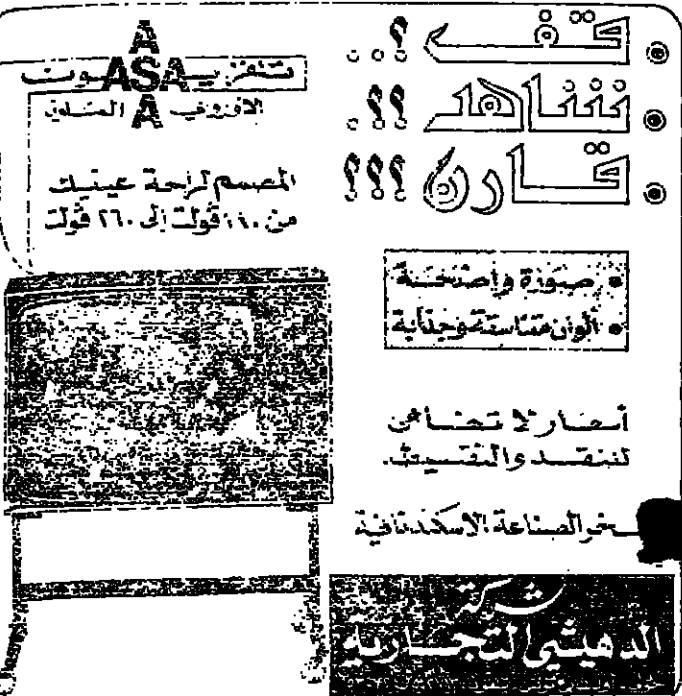 • قف ؟..
• شاهد ؟؟.
• قارن ؟؟؟
ASA
تلفزيون
الافزوفي الملون
المصمم لراحة عينيك
من ١٤٠ ڤولت إلى ٢٦٠ ڤولت
• صورة واضحة
• ألوان متناسقة وجذابة
أسعار لا تضاهى
للنقد والتقسيط.
الصناعة الاسكندنافية
شركة
الدهيشي التجارية